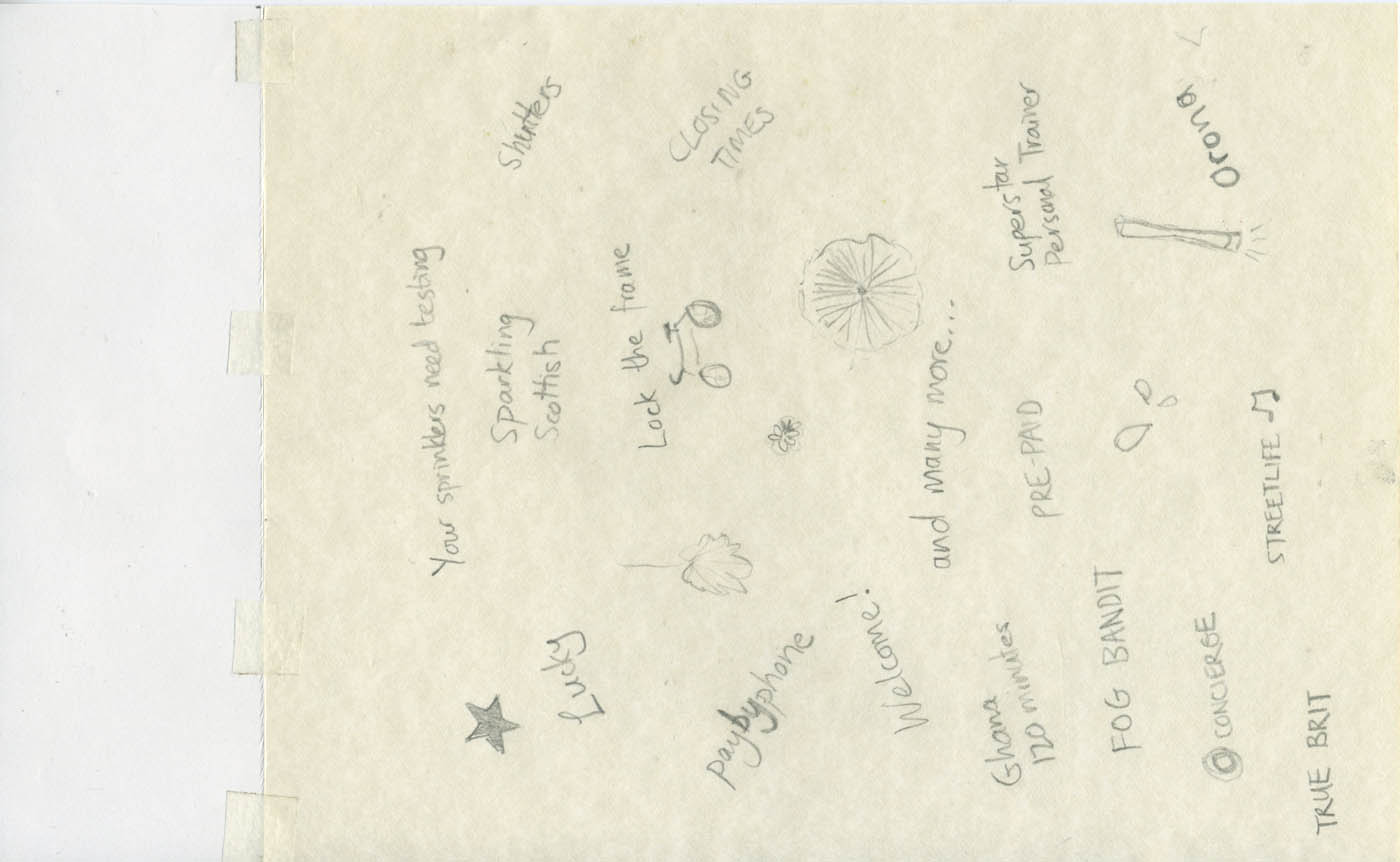 Your sprinklers need testing
Sparkling
Scottish
Shutters
Lucky
Lock the frame
CLOSING
TIMES
paybyphone
Welcome!
and many more...
Ghana
120 minutes
PRE-PAID
Superstar
Personal Trainer
FOG BANDIT
Orona
CONCIERGE
STREETLIFE
TRUE BRIT